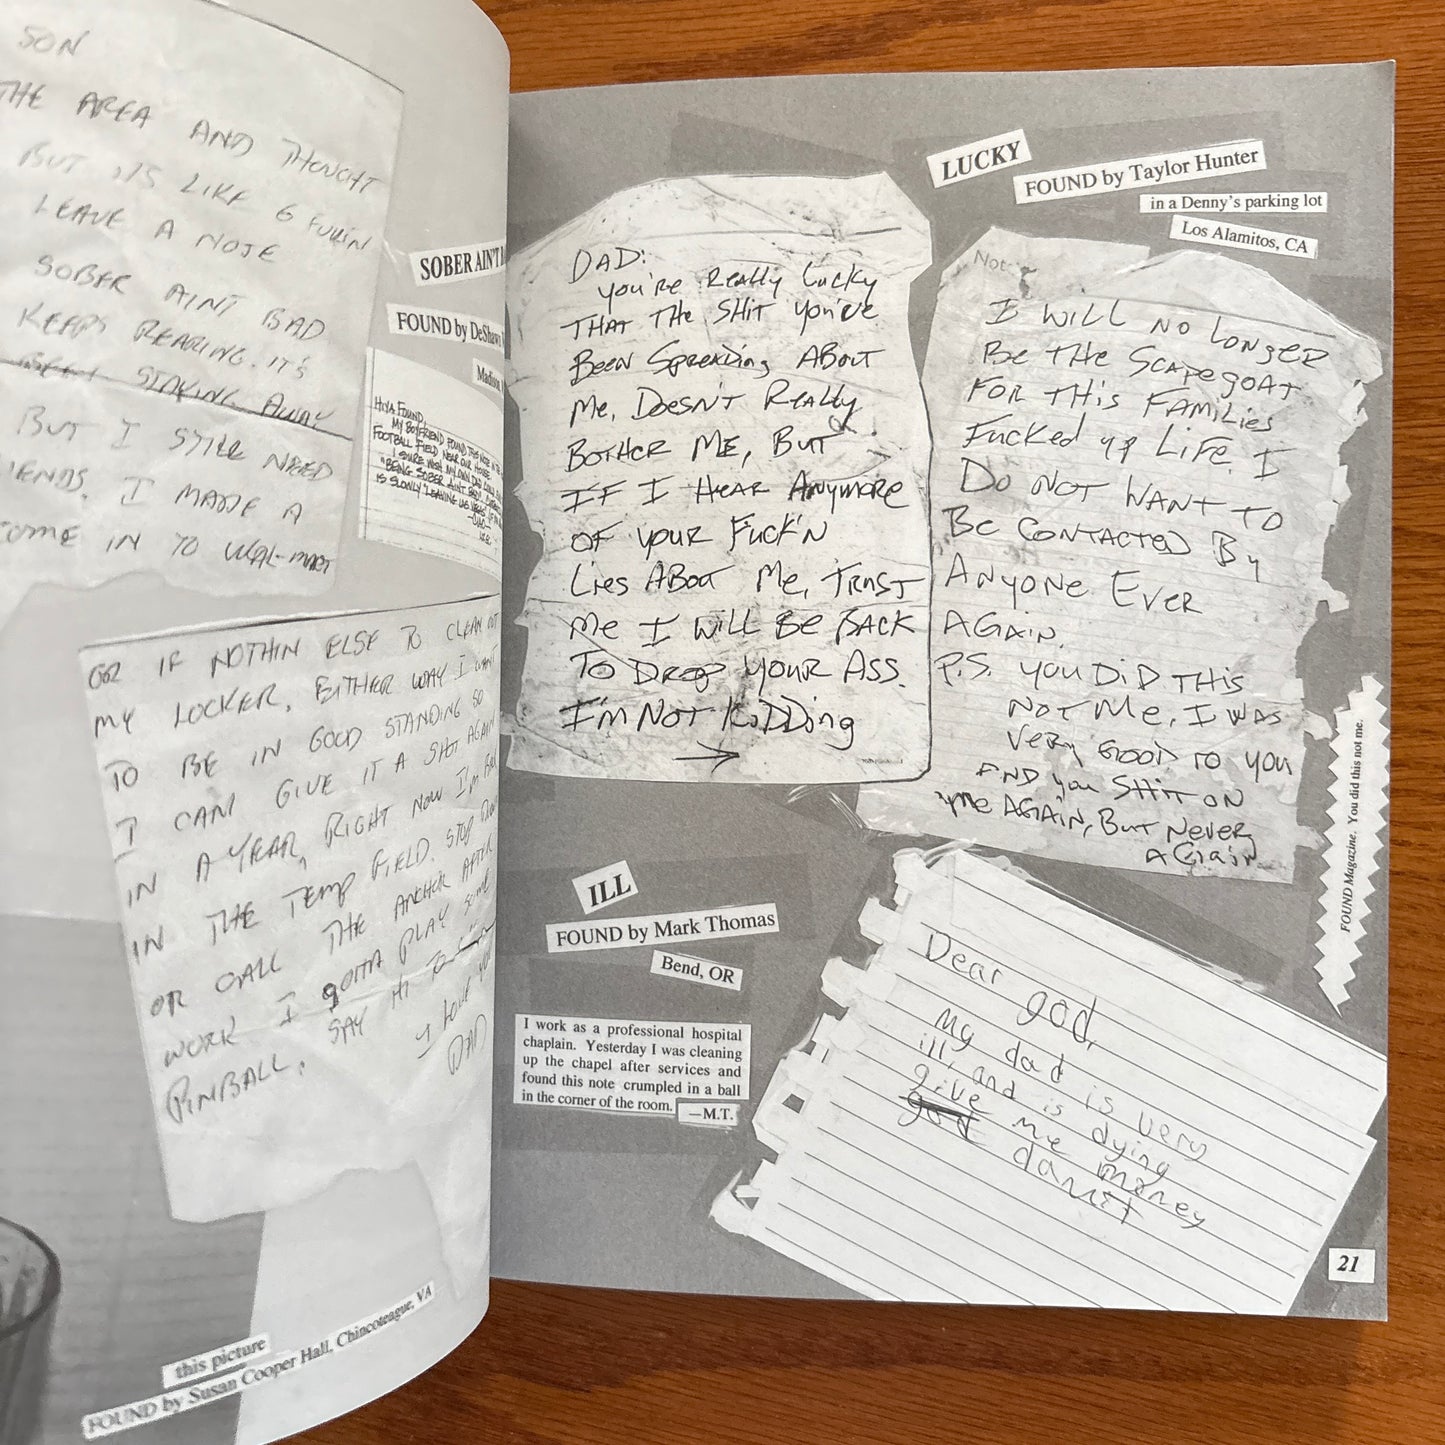 SON
THE AREA AND THOUGHT
BUT ITS LIKE 6 FUKIN
LEAVE A NOTE
SOBER AINT BAD
KEEPS REARING. IT'S
STAYING AWAY
BUT I STILL NEED
I MADE A
COME IN TO WAL-MART
OR IF NOTHIN ELSE TO CLEAN OUT
MY LOCKER, EITHER WAY I WANT
TO BE IN GOOD STANDING SO
I CAN GIVE IT A SHOT AGAIN
IN A YEAR, RIGHT NOW I'M BACK
IN THE TEMP FIELD. STOP
OR CALL THE ANCHOR AFTER
WORK I gOTTA PLAY SOME
PINBALL. SAY HI TO
I LOVE YOU
DAD
SOBER AIN'T
FOUND by DeShawn
Madison,
HIYA FOUND,
MY BOYFRIEND FOUND THIS NOTE IN THE
FOOTBALL FIELD NEAR OUR HOUSE
I SURE WISH MY OWN DAD
"BEING SOBER AINT BAD"
IS SLOWLY "LEAVING
this picture
FOUND by Susan Cooper Hall, Chincoteague, VA
LUCKY
FOUND by Taylor Hunter
in a Denny's parking lot
Los Alamitos, CA
DAD:
you're Really Lucky
THAT THE SHIT you've
BEEN Spreading ABOUT
Me, DOESN'T Really
BOTHER ME, BUT
IF I HEAR Anymore
OF your Fuck'n
Lies ABOUT Me, TRUST
Me I WILL BE BACK
TO DROP YOUR ASS.
I'M NOT KiDDing
→
Note
I WILL NO LONGER
Be THE SCAPEGOAT
FOR THiS FAMiLies
Fucked up LiFe. I
DO NOT WANT TO
Be CONTACTED By
ANyONE EVER
AGAiN.
P.S. YOU DiD THIS
NOT Me, I WAS
Very GOOD TO YOU
AND you SHiT ON
Me AGAIN, BUT Never
AGain
FOUND Magazine. You did this not me.
ILL
FOUND by Mark Thomas
Bend, OR
I work as a professional hospital
chaplain. Yesterday I was cleaning
up the chapel after services and
found this note crumpled in a ball
in the corner of the room.
—M.T.
Dear god,
My dad is very
ill, and is dying
give me money
god damit
21